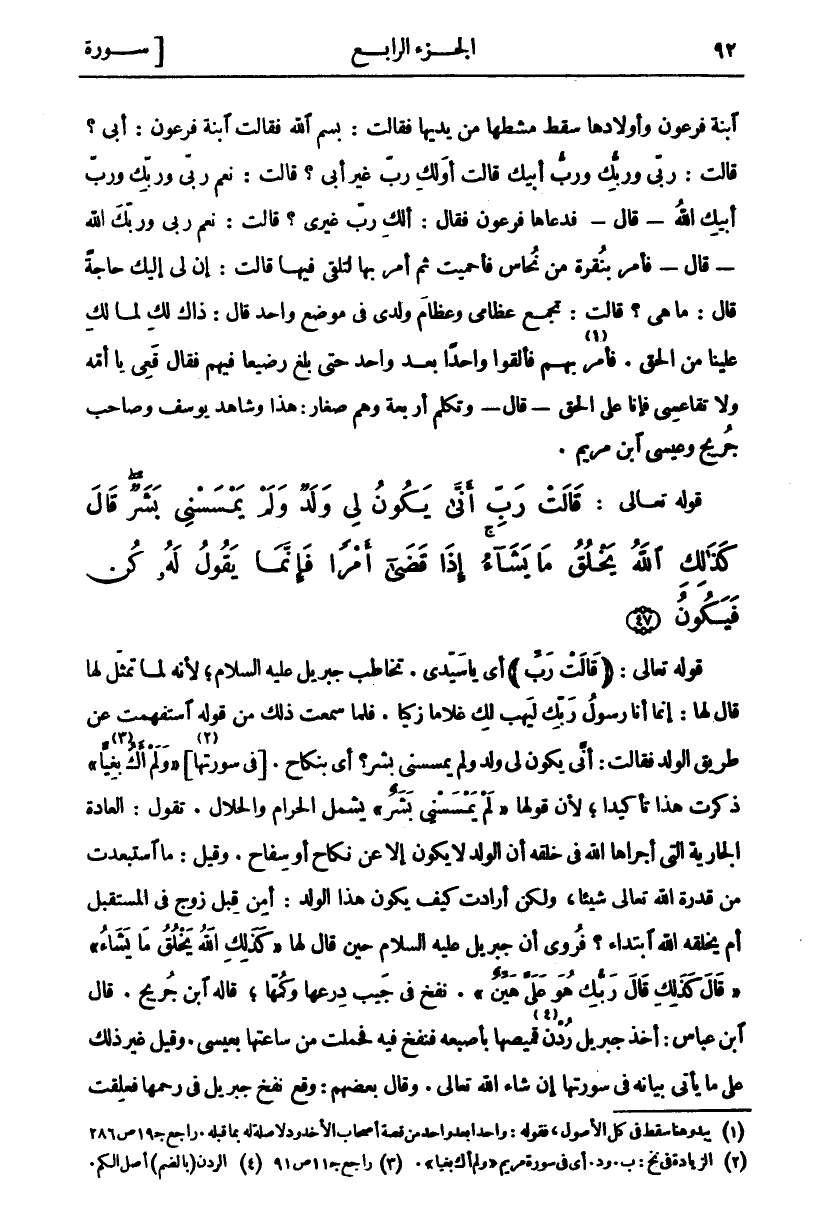 ٩٢ الجـــزء الرابـــع [ ســـورة
آبنة فرعون وأولادها سقط مشطها من يديها فقالت : بسم آلله فقالت آبنة فرعون : أبى ؟
قالت : ربّى وربُّك وربُّ أبيك قالت أوَلكِ ربّ غير أبى ؟ قالت : نعم ربّى وربّك وربّ
أبيك اللهُ — قال — فدعاها فرعون فقال : ألك ربّ غيرى ؟ قالت : نعم ربى وربّكَ الله
— قال — فأمر بنُقرة من نُحاس فأحميت ثم أمر بها لتلقى فيهـا قالت : إن لى إليك حاجةً
قال : ما هى ؟ قالت : تجمع عظامى وعظامَ ولدى فى موضع واحد قال : ذاك لكِ لمـا لكِ
علينا من الحق . فأمر(١) بهـم فألقوا واحدًا بعـد واحد حتى بلغ رضيعا فيهم فقال قَعِى يا أمّه
ولا تقاعسِى فإنا على الحق — قال — وتكلم أربعة وهم صغار : هذا وشاهد يوسف وصاحب
جُريج وعيسى آبن مريم .
قوله تعـالى : قَالَتْ رَبِّ أَنَّىٰ يَكُونُ لِى وَلَدٌ وَلَمْ يَمْسَسْنِى بَشَرٌ ۖ قَالَ
كَذَٰلِكِ ٱللَّهُ يَخْلُقُ مَا يَشَآءُ ۚ إِذَا قَضَىٰٓ أَمْرًا فَإِنَّمَا يَقُولُ لَهُۥ كُن
فَيَكُونُ ﴿٤٧﴾
قوله تعالى : ﴿ قَالَتْ رَبِّ ﴾ أى يا سيّدى . تخاطب جبريل عليه السلام ؛ لأنه لمـا تمثّل لها
قال لها : إنما أنا رسولُ رَبِّكِ لِيَهب لكِ غلاما زكيا . فلما سمعت ذلك من قوله آستفهمت عن
طريق الولد فقالت : أَنَّى يكون لى ولد ولم يمسسنى بشر؟ أى بنكاح . [فى سورتها](٢) «وَلَمْ أَكُ بَغِيًّا»(٣)
ذكرت هذا تأكيدا ؛ لأن قولها « لَمْ يَمْسَسْنِى بَشَرٌ » يشمل الحرام والحلال . تقول : العادة
الجارية التى أجراها الله فى خلقه أن الولد لا يكون إلا عن نكاح أو سفاح . وقيل : ما آستبعدت
من قدرة الله تعالى شيئا، ولكن أرادت كيف يكون هذا الولد : أمِن قِبل زوج فى المستقبل
أم يخلقه الله آبتداء ؟ فرُوى أن جبريل عليه السلام حين قال لها « كَذَلِكِ اللهُ يَخْلُقُ مَا يَشَاءُ »
« قَالَ كَذَلِكِ قَالَ رَبُّكِ هُوَ عَلَىَّ هَيِّنٌ » . نفخ فى جَيب دِرعها وكُمِّها ؛ قاله آبن جُريج . قال
آبن عباس : أخذ جبريل رُدْن(٤) قميصها بأصبعه فنفخ فيه فحملت من ساعتها بعيسى . وقيل غير ذلك
على ما يأتى بيانه فى سورتها إن شاء الله تعالى . وقال بعضهم : وقع نفخ جبريل فى رحمها فعلِقت
(١) يبدو هنا سقط فى كل الأصول، فقوله : واحدا بعد واحد من قصة أصحاب الأخدود لا صلة له بما قبله . راجع ج ١٩ ص ٢٨٦
(٢) الزيادة فى نخ : ب . ود . أى فى سورة مريم «ولم أك بغيا» . (٣) راجع ج ١١ ص ٩١ (٤) الردن (بالضم) أصل الكم .